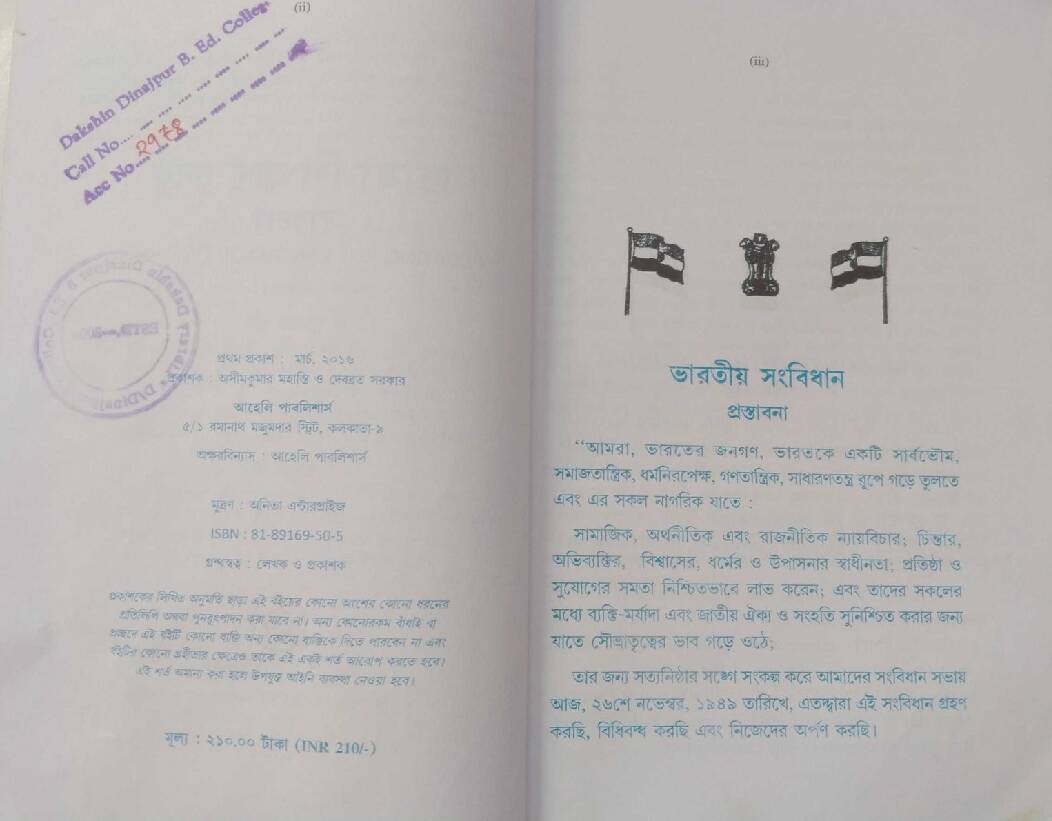 (ii)
Dakshin Dinajpur B. Ed. College
Call No.
Acc No. ২৭৭৪
প্রথম প্রকাশ : মার্চ, ২০১৬
প্রকাশক : অসীমকুমার মহান্তি ও দেবব্রত সরকার
আহেলি পাবলিশার্স
৫/১ রমানাথ মজুমদার স্ট্রিট, কলকাতা-৯
অক্ষরবিন্যাস : আহেলি পাবলিশার্স
মুদ্রণ : অনিতা এন্টারপ্রাইজ
ISBN : 81-89169-50-5
গ্রন্থস্বত্ব : লেখক ও প্রকাশক
প্রকাশকের লিখিত অনুমতি ছাড়া এই বইয়ের কোনো অংশের কোনো ধরনের
প্রতিলিপি অথবা পুনরুৎপাদন করা যাবে না। অন্য কোনোরকম বাঁধাই বা
প্রচ্ছদে এই বইটি কোনো ব্যক্তি অন্য কোনো ব্যক্তিকে দিতে পারবেন না এবং
বইটির কোনো গ্রহীতার ক্ষেত্রেও তাকে এই একই শর্ত আরোপ করতে হবে।
এই শর্ত অমান্য করা হলে উপযুক্ত আইনি ব্যবস্থা নেওয়া হবে।
মূল্য : ২১০.০০ টাকা (INR 210/-)
(iii)
ভারতীয় সংবিধান
প্রস্তাবনা
“আমরা, ভারতের জনগণ, ভারতকে একটি সার্বভৌম,
সমাজতান্ত্রিক, ধর্মনিরপেক্ষ, গণতান্ত্রিক, সাধারণতন্ত্র রূপে গড়ে তুলতে
এবং এর সকল নাগরিক যাতে :
সামাজিক, অর্থনীতিক এবং রাজনীতিক ন্যায়বিচার; চিন্তার,
অভিব্যক্তির, বিশ্বাসের, ধর্মের ও উপাসনার স্বাধীনতা; প্রতিষ্ঠা ও
সুযোগের সমতা নিশ্চিতভাবে লাভ করেন; এবং তাদের সকলের
মধ্যে ব্যক্তি-মর্যাদা এবং জাতীয় ঐক্য ও সংহতি সুনিশ্চিত করার জন্য
যাতে সৌভ্রাতৃত্বের ভাব গড়ে ওঠে;
তার জন্য সত্যনিষ্ঠার সঙ্গে সংকল্প করে আমাদের সংবিধান সভায়
আজ, ২৬শে নভেম্বর, ১৯৪৯ তারিখে, এতদ্দ্বারা এই সংবিধান গ্রহণ
করছি, বিধিবদ্ধ করছি এবং নিজেদের অর্পণ করছি।